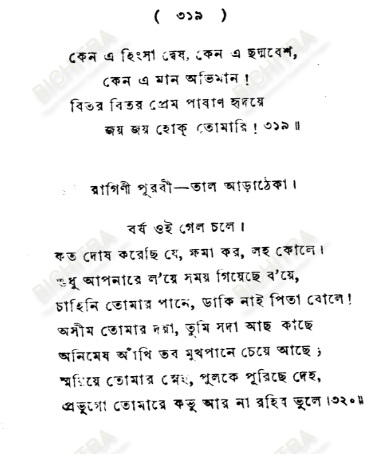 ( ৩১৯ )
কেন এ হিংসা দ্বেষ, কেন এ ছদ্মবেশ,
কেন এ মান অভিমান !
বিতর বিতর প্রেম পাষাণ হৃদয়ে
জয় জয় হোক্ তোমারি ! ৩১৯ ॥
রাগিণী পূরবী—তাল আড়াঠেকা।
বর্ষ ওই গেল চলে।
কত দোষ করেছি যে, ক্ষমা কর, লহ কোলে।
শুধু আপনারে ল'য়ে সময় গিয়েছে ব'য়ে,
চাহিনি তোমার পানে, ডাকি নাই পিতা বোলে !
অসীম তোমার দয়া, তুমি সদা আছ কাছে
অনিমেষ আঁখি তব মুখপানে চেয়ে আছে ;
স্মরিয়ে তোমার স্নেহ, পুলকে পূরিছে দেহ,
প্রভুগো তোমারে কভু আর না রহিব ভুলে।৩২০॥